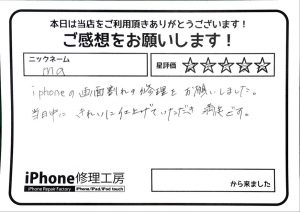 本日は当店をご利用頂きありがとうございます!
ご感想をお願いします!
ニックネーム
ma
星評価 ☆☆☆☆☆
iphoneの画面割れの修理をお願いしました。
当日中にきれいに仕上げていただき満足です。
iPhone修理工房
iPhone Repair Factory iPhone/iPad/iPod touch
から来ました